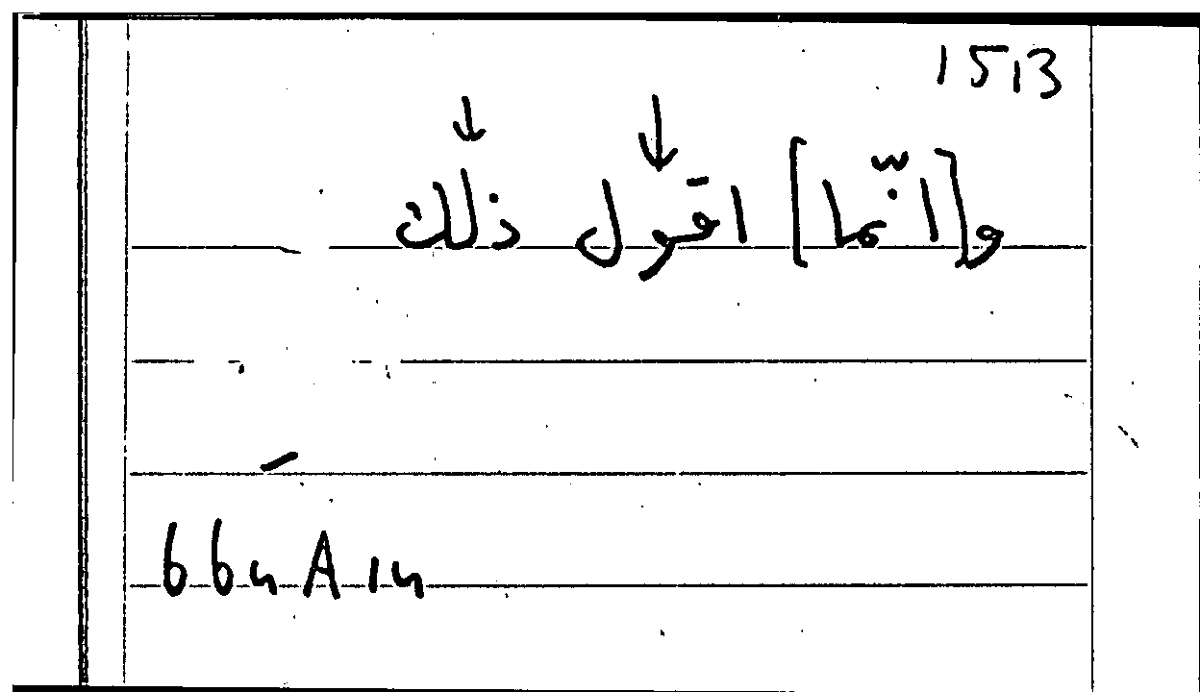 1513
↓ ↓
و[انّما] اقول ذلك
664 A 14